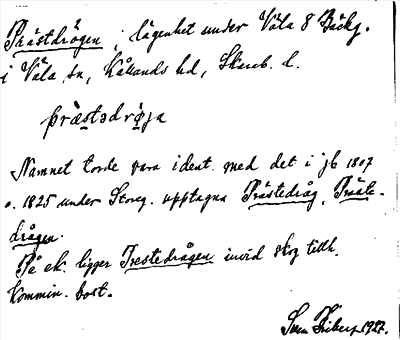 Prästdrågen, lägenhet under Väla 8 Bäckg.
i Väla sn, Kållands hd, Skarab. l.
præstədrɷ̨ja
Namnet torde vara ident. med det i jb 1807
o. 1825 under Storeg. upptagna Prästedråg, Präste-
drågen.
På ek. ligger Prestedrågen invid skog tillh.
Kommin. bost.
Sven 1927.